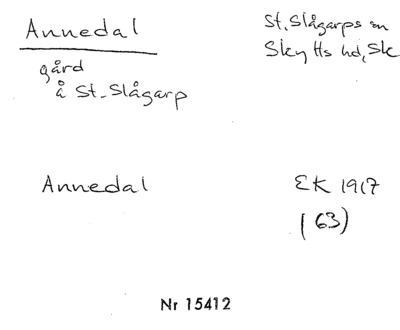 Annedal
St. Slågarps sn
Skytts hd, Sk
gård
å St. Slågarp
Annedal
EK 1917
(63)
Nr 15412